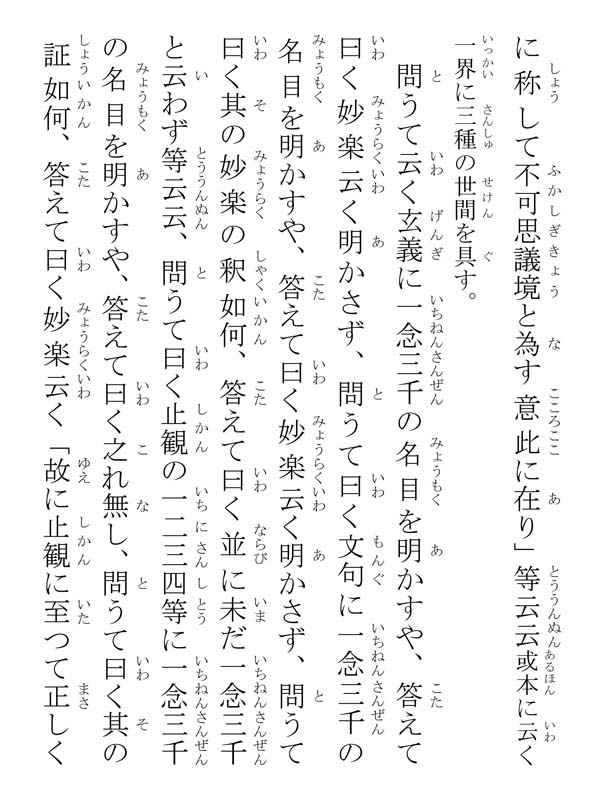 に称して不可思議境と為す意此に在り」等云云或本に云く
一界に三種の世間を具す。
問うて云く玄義に一念三千の名目を明かすや、答えて
曰く妙楽云く明かさず、問うて曰く文句に一念三千の
名目を明かすや、答えて曰く妙楽云く明かさず、問うて
曰く其の妙楽の釈如何、答えて曰く並に未だ一念三千
と云わず等云云、問うて曰く止観の一二三四等に一念三千
の名目を明かすや、答えて曰く之れ無し、問うて曰く其の
証如何、答えて曰く妙楽云く「故に止観に至つて正しく